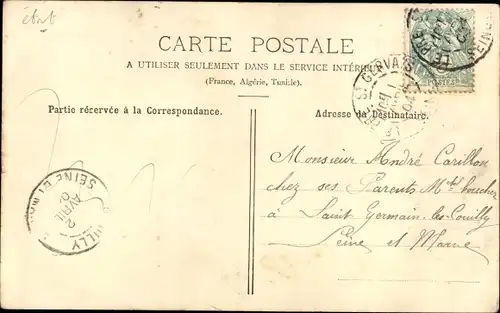 état
CARTE POSTALE
A UTILISER SEULEMENT DANS LE SERVICE INTÉRIEUR
(France, Algérie, Tunisie).
Partie récervée à la Correspondance.
Adresse du Destinataire.
POSTES
ST GERVAIS
SEINE ET
AVRIL
Monsieur André Carillon
chez ses Parents Md boucher
à Saint Germain les Couilly
Seine et Marne